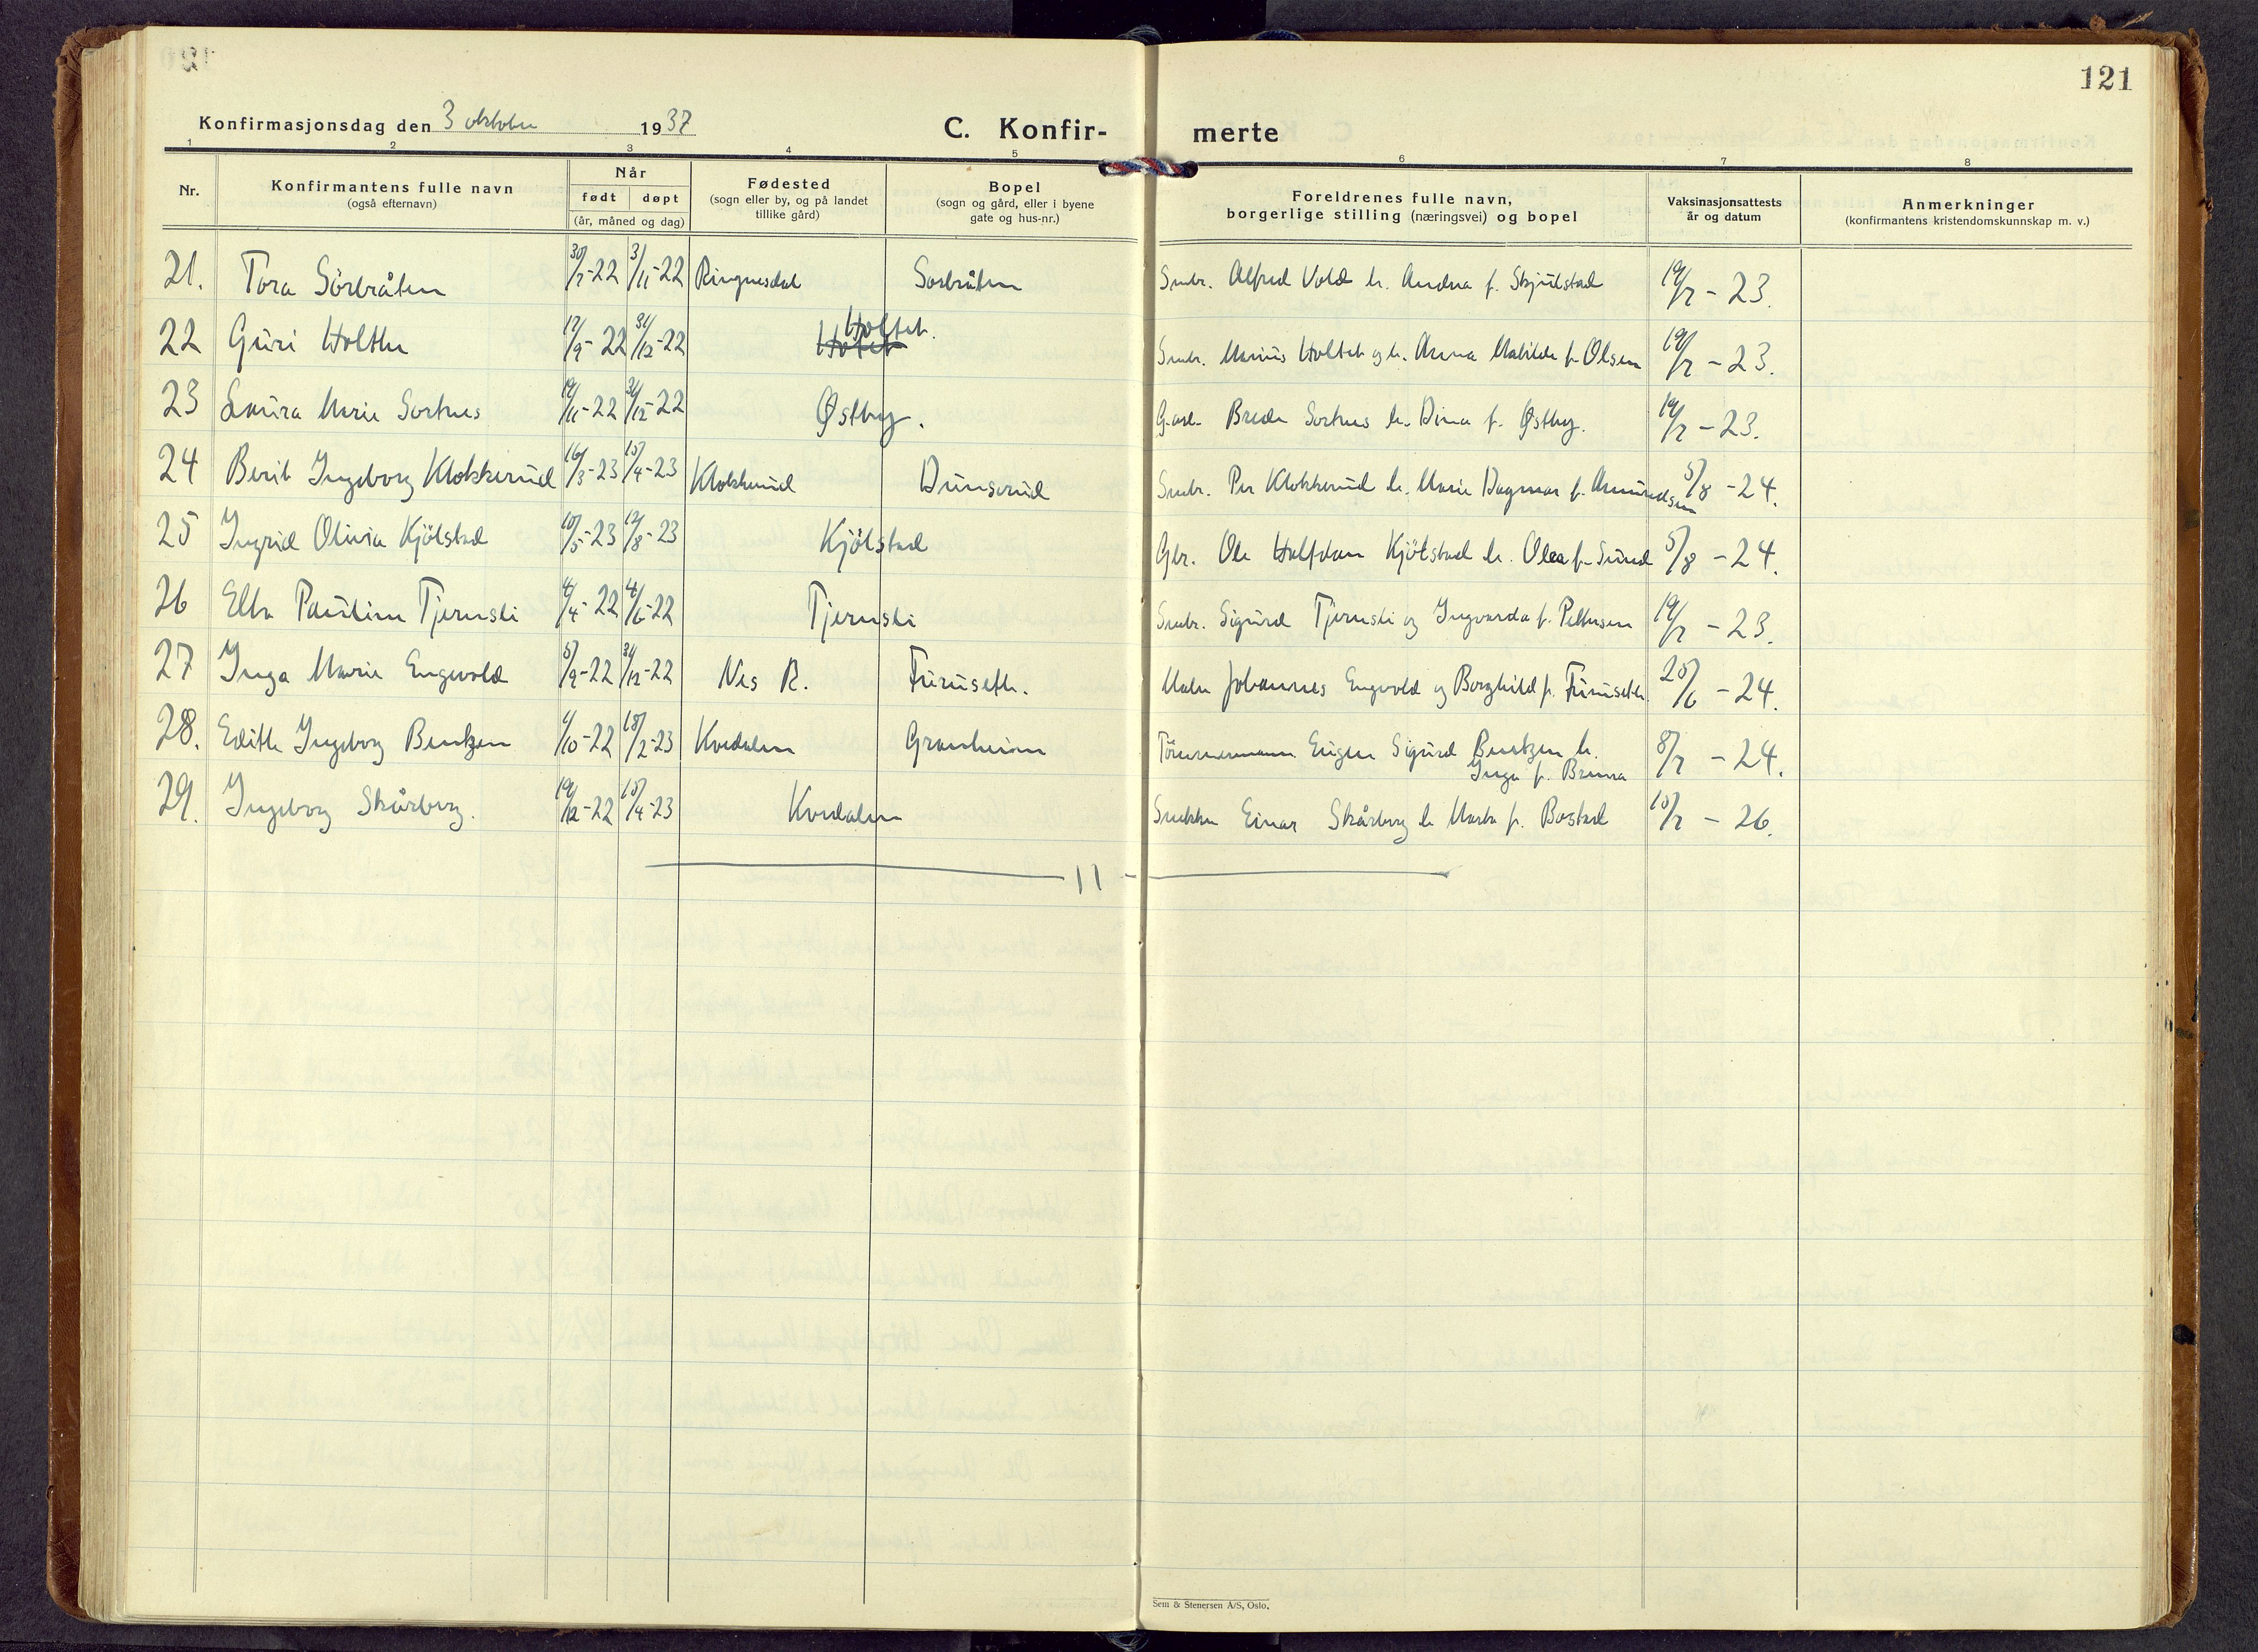 121
Konfirmasjonsdag den 3 oktober 1937
C. Konfir- merte
1 2 3 4 5 6 7 8
Nr.
Konfirmantens fulle navn
(også efternavn)
Når
født døpt
(år, måned og dag)
Fødested
(sogn eller by, og på landet
tillike gård)
Bopel
(sogn og gård, eller i byene
gate og hus-nr.)
Foreldrenes fulle navn,
borgerlige stilling (næringsvei) og bopel
Vaksinasjonsattests
år og datum
Anmerkninger
(konfirmantens kristendomskunnskap m. v.)
21. Tora Sörbråten 30/7-22 3/11-22 Ringnesdal Sörbråten Smbr. Alfred Vold h. Andrea f. Skjulstad 19/7 - 23.
22 Guri Holthe 17/9-22 31/12-22 Holtet Holtet. Smbr. Marius Holtet og h. Anna Mathilde f. Olsen 19/7 - 23.
23 Laura Marie Sortnes 19/11-22 31/12-22 Østby. Gard. Brede Sortnes h. Dina f. Østby. 19/7 - 23.
24 Berit Ingeborg Klokkerud 16/3-23 15/4-23 Klokkerud Dunserud Smbr. Per Klokkerud h. Marie Dagmar f. Amundsen 5/8 - 24.
25 Ingrid Olivia Kjölstad 10/5-23 12/8-23 Kjölstad Gbr. Ole Halfdan Kjölstad h. Olea f. Sund 5/8 - 24.
26 Elba Pauline Tjernsli 4/4-22 4/6-22 Tjernsli Smbr. Sigurd Tjernsli og Ingvarda f. Pettersen 19/7 - 23.
27 Inga Marie Engvold 5/9-22 31/12-22 Nes R. Furuseth. Maler Johannes Engvold og Borghild f. Furuseth 25/6 - 24.
28. Edith Ingeborg Bentzen 4/10-22 18/2-23 Kvedalen Granheim Tömmermann Eugen Sigurd Bentzen h.
Inga f. Brenna 8/7 - 24.
29. Ingeborg Skårberg. 19/12-22 15/4-23 Kvedalen Snekker Einar Skårberg h. Marta f. Bostad 10/7 - 26.
Sem & Stenersen A/S, Oslo.